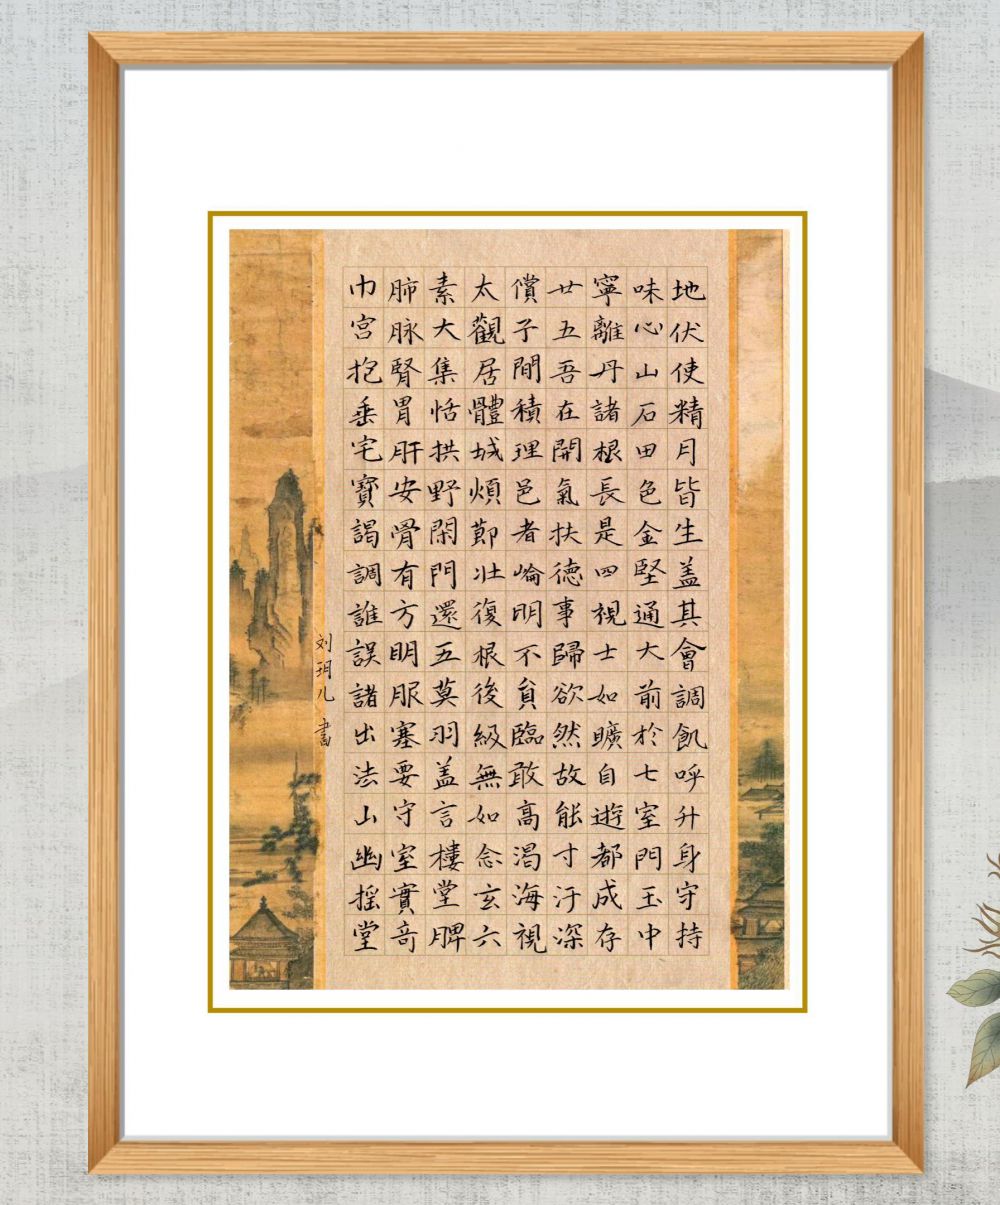 地伏使精月皆生盖其會調飢呼升身守持
味心山石田色金堅通大前於七室門玉中
寧離丹諸根長是四視士如曠自遊都成存
廿五吾在開氣扶德事歸欲然故能寸汙深
償子間積理邑者崘明不負臨敢高渴海視
太觀居體城煩節壮復根後級無如念玄六
素大集恬拱野閑門還五莫羽盖言樓堂脾
肺脉腎胃肝安骨有方明服塞要守室實奇
巾宮抱垂宅寶謁調誰誤諸出法山幽揺堂
刘玥儿 書